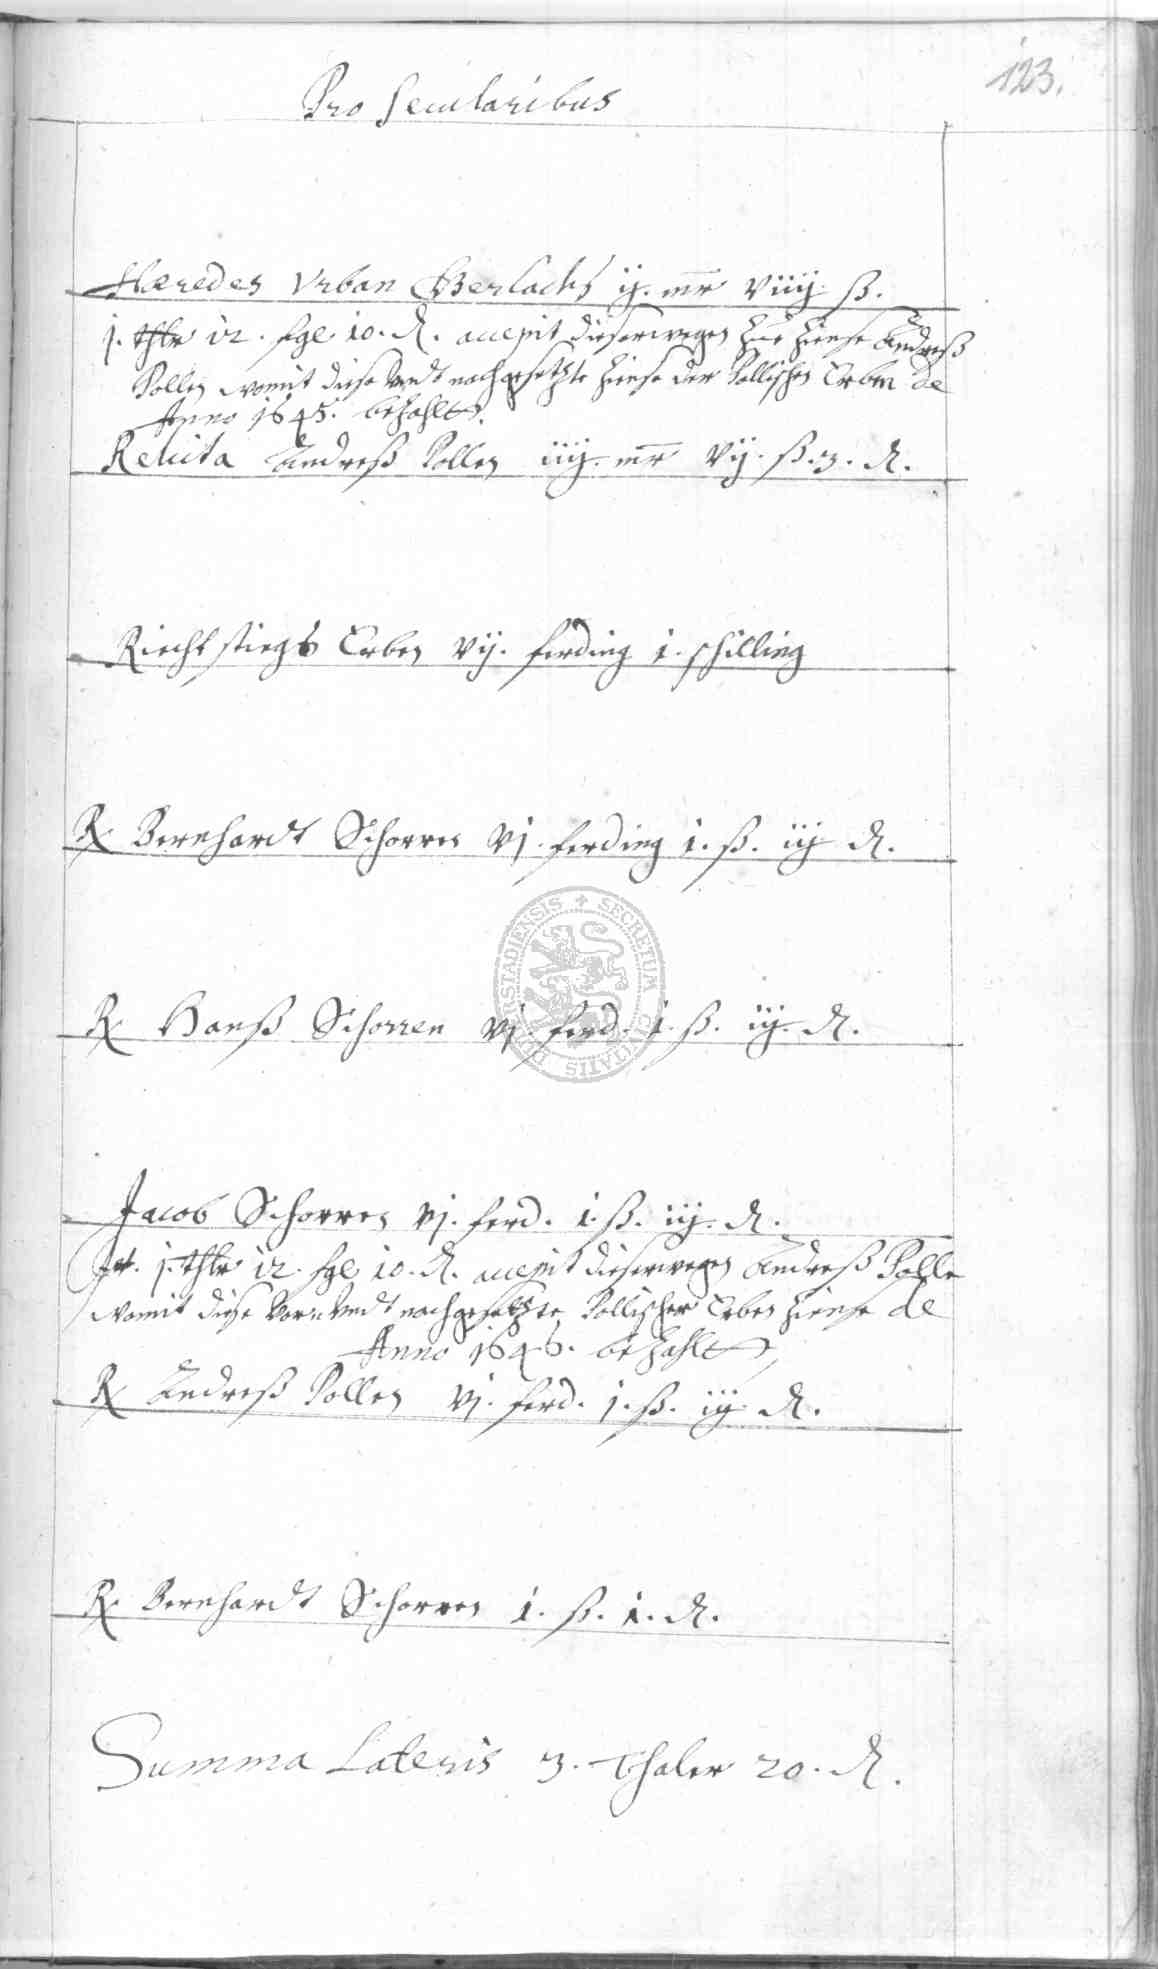 123.
Pro Secularibus
Hæredes Vrban Gerlachs ij. mr viiij. ß.
j. thlr 12. sgl 10. d. accepit dieserwegen Zue Zinse Andreß
Pollen womit diese Undt nachgesetzte Zinse der Pollischen Erben de
Anno 1645. bezahlt.
Relicta Andreß Pollen iiij. mr vij. ß. 3. d.
Riechstiegs Erben vij. ferding 1. schilling
R Bernhardt Schorren vj. ferding 1. ß. iij d.
R Hanß Schorren vj. ferd. 1. ß. iij. d.
Jacob Schorren vj. ferd. 1. ß. iij. d.
It. j. thlr 12. sgl 10. d. accepit dieserwegen Andreß Polle
womit diese Vor Undt nachgesetzte Pollischer Erben Zinse de
Anno 1646. bezahlt
R Andreß Pollen vj. ferd. j. ß. iij d.
R Bernhardt Schorren 1. ß. 1. d.
Summa Lateris 3. Thaler 20. d.
SECRETUM CIVITATIS DUDERSTADIENSIS